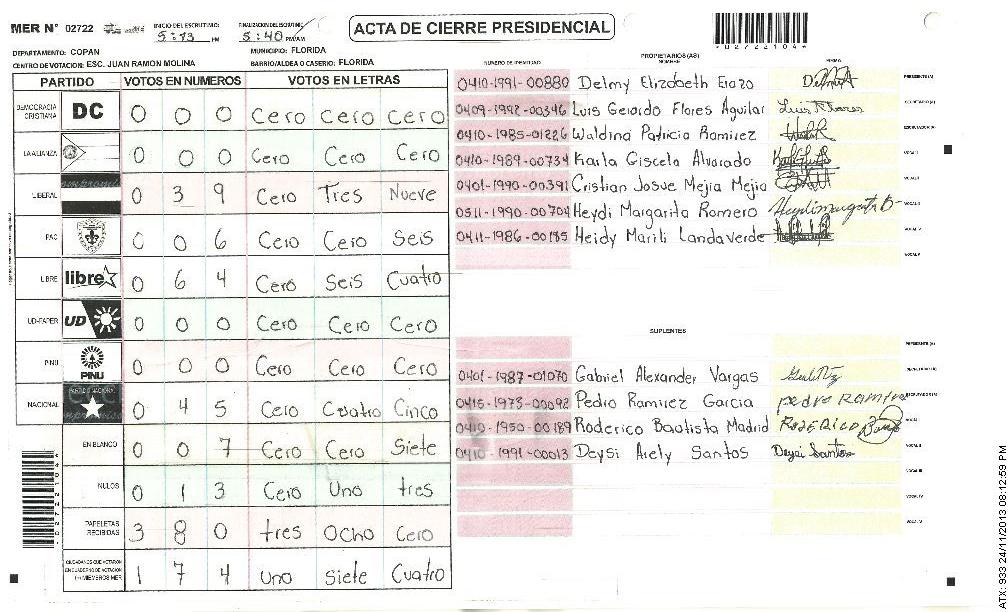 MER N° 02722 INICIO DEL ESCRUTINIO: 5:13 PM FINALIZACION DEL ESCRUTINIO: 5:40 PM/AM ACTA DE CIERRE PRESIDENCIAL
DEPARTAMENTO: COPAN MUNICIPIO: FLORIDA
CENTRO DE VOTACION: ESC. JUAN RAMON MOLINA BARRIO/ALDEA O CASERIO: FLORIDA
PARTIDO VOTOS EN NUMEROS VOTOS EN LETRAS
DEMOCRACIA CRISTIANA DC 0 0 0 Cero Cero Cero
LA ALIANZA 0 0 0 Cero Cero Cero
LIBERAL 0 3 9 Cero Tres Nueve
PAC 0 0 6 Cero Cero Seis
LIBRE libre 0 6 4 Cero Seis Cuatro
UD-FAPER UD 0 0 0 Cero Cero Cero
PINU PINU 0 0 0 Cero Cero Cero
NACIONAL 0 4 5 Cero Cuatro Cinco
EN BLANCO 0 0 7 Cero Cero Siete
NULOS 0 1 3 Cero Uno tres
PAPELETAS RECIBIDAS 3 8 0 tres Ocho Cero
CIUDADANOS QUE VOTARON EN CUADERNO DE VOTACION (+) MIEMBROS MER 1 7 4 uno Siete Cuatro
PROPIETARIOS(AS)
NUMERO DE IDENTIDAD NOMBRE FIRMA
0410-1991-00880 Delmy Elizabeth Erazo PRESIDENTE(A)
0409-1992-00346 Luis Gerardo Flores Aguilar Luis Flores SECRETARIO(A)
0410-1985-01226 Waldina Patricia Ramirez ESCRUTADOR(A)
0410-1989-00734 Karla Giscela Alvarado VOCAL I
0401-1990-00391 Cristian Josue Mejia Mejia VOCAL II
0511-1990-00704 Heydi Margarita Romero Heydimargarita VOCAL III
0411-1986-00185 Heidy Marili Landaverde VOCAL IV
VOCAL V
SUPLENTES
PRESIDENTE(A)
0401-1987-01070 Gabriel Alexander Vargas SECRETARIO(A)
0415-1973-00092 Pedro Ramirez Garcia pedro RAMIREZ ESCRUTADOR(A)
0410-1950-00189 Roderico Bautista Madrid RODERICO VOCAL I
0410-1991-00013 Deysi Arely Santos Deysi Santos VOCAL II
VOCAL III
VOCAL IV
VOCAL V
ATX: 933 24/11/2013 08:12:59 PM